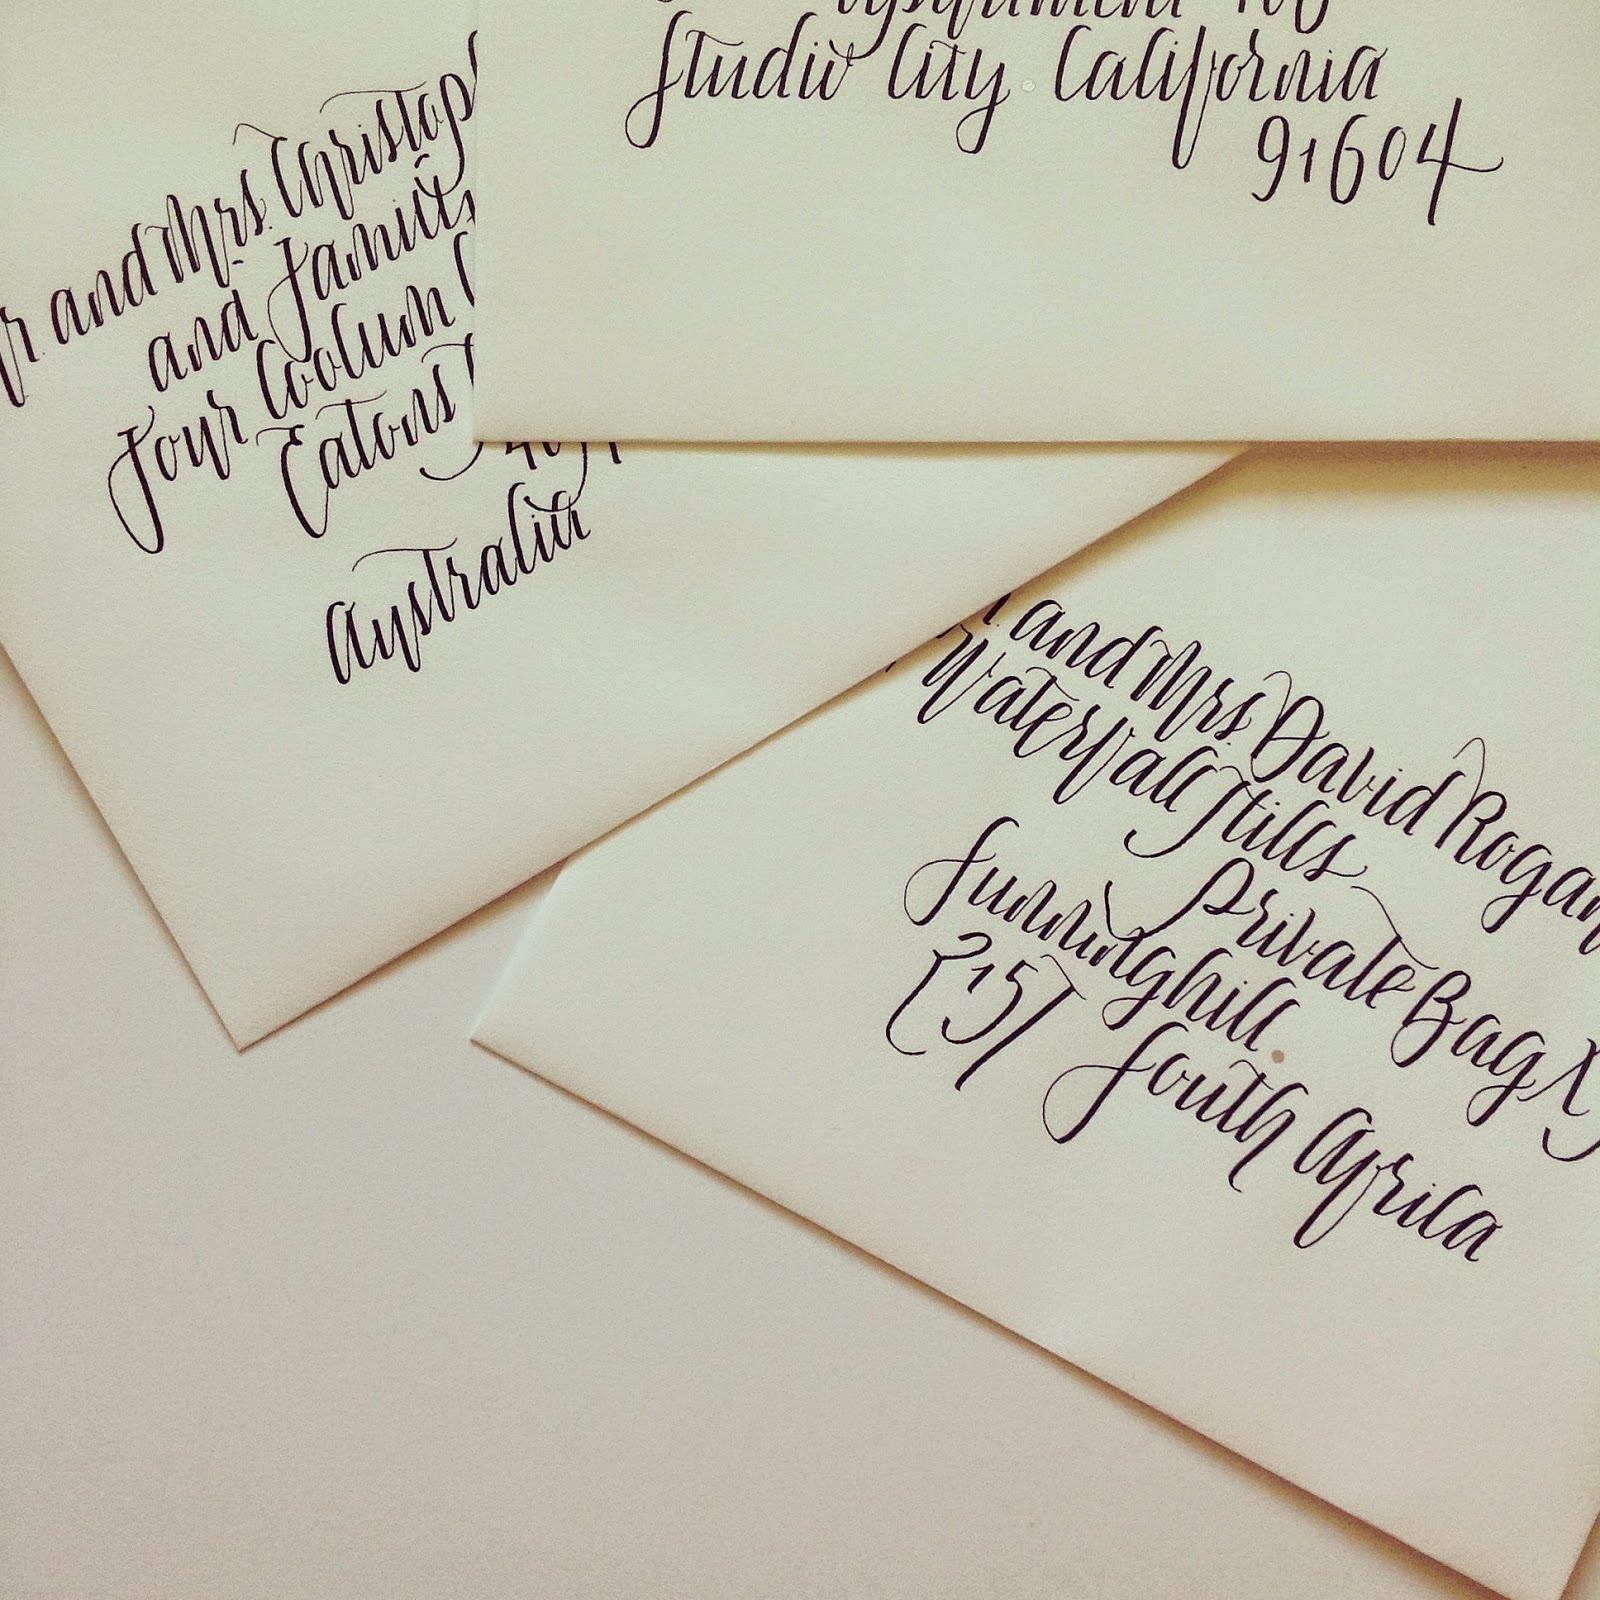 Studio City. California
91604
and Mrs. Christop
and Family
Four Coolum
Eatons
Australia
and Mrs. David Rogan
Waterfall Stills
Private Bag X
Sunninghill
2157
South Africa